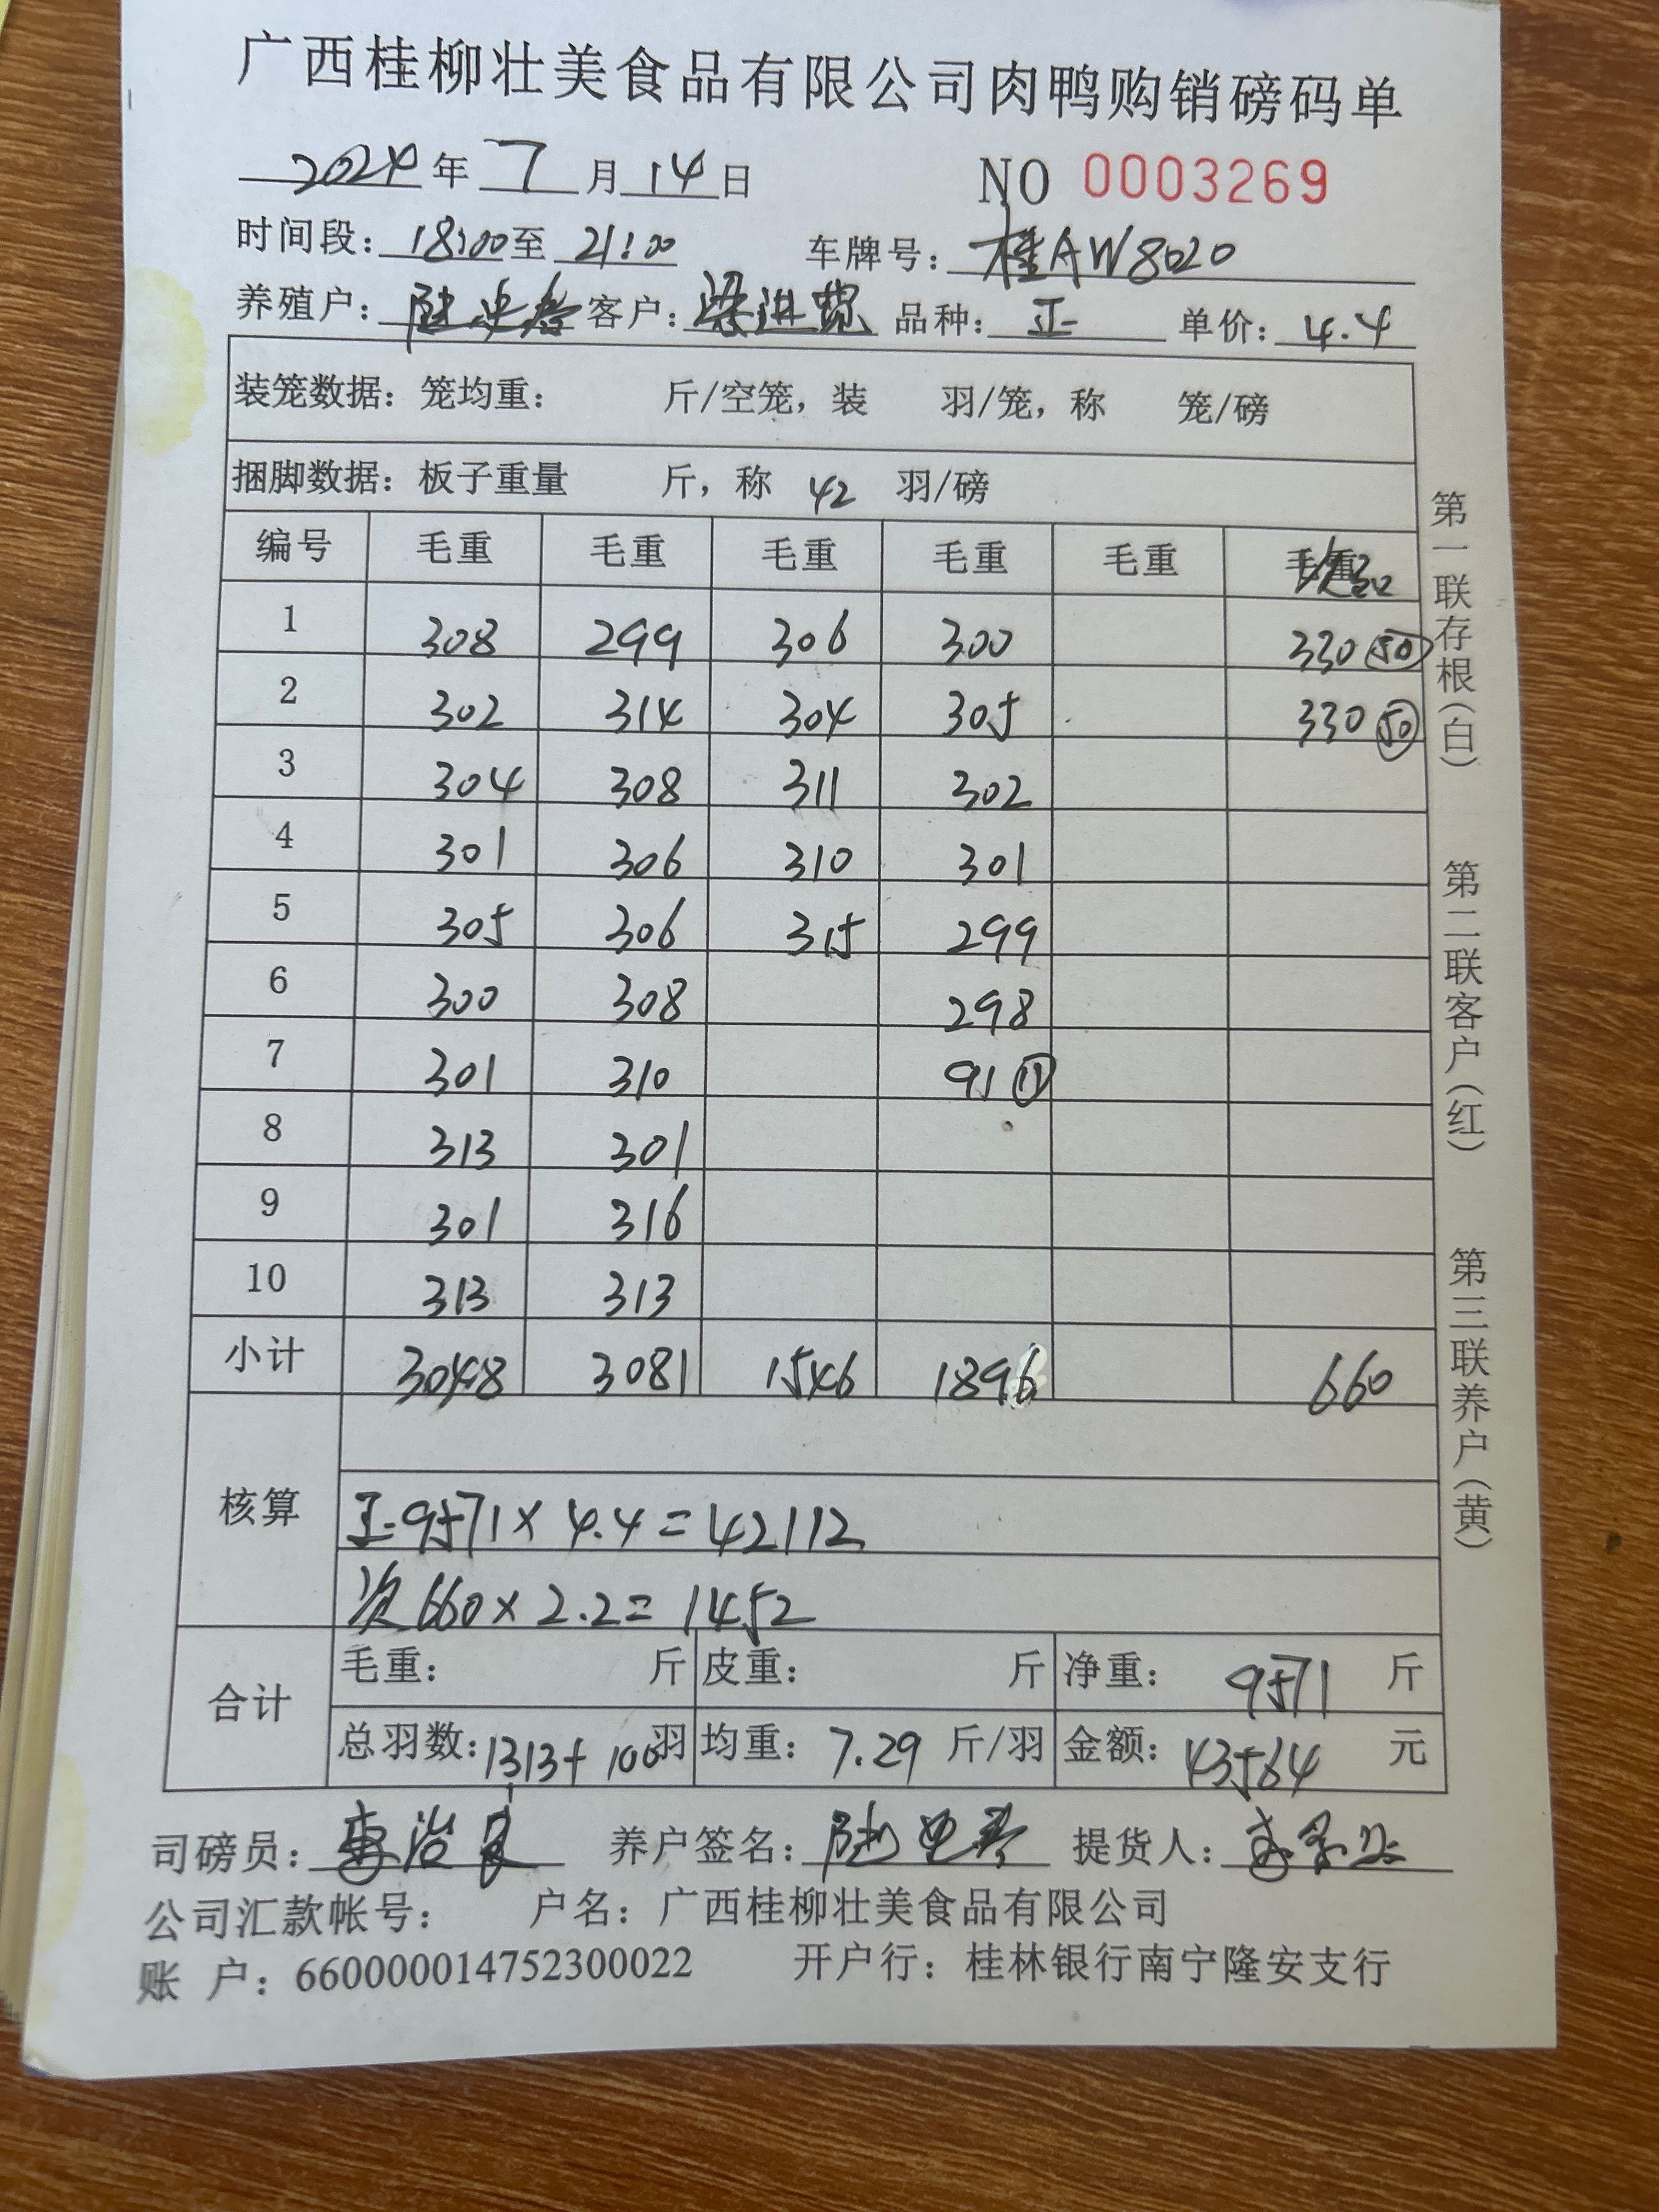 广西桂柳壮美食品有限公司肉鸭购销磅码单
2024年 7 月 14 日 NO 0003269
时间段: 18:00至 21:00 车牌号: 桂AW8020
养殖户: 陆 客户: 梁进 品种: 正 单价: 4.4
装笼数据: 笼均重: 斤/空笼, 装 羽/笼, 称 笼/磅
捆脚数据: 板子重量 斤, 称 42 羽/磅
编号 毛重 毛重 毛重 毛重 毛重 毛重 次
1 308 299 306 300 330 50
2 302 314 304 305 330 50
3 304 308 311 302
4 301 306 310 301
5 305 306 315 299
6 300 308 298
7 301 310 91 11
8 313 301
9 301 316
10 313 313
小计 3048 3081 1546 1896 660
核算
正 9571 × 4.4 = 42112
次 660 × 2.2 = 1452
合计 毛重: 斤 皮重: 斤 净重: 9571 斤
总羽数: 1313+100羽 均重: 7.29 斤/羽 金额: 43564 元
司磅员: 李治良 养户签名: 陆 提货人:
公司汇款帐号: 户名: 广西桂柳壮美食品有限公司
账 户: 660000014752300022 开户行: 桂林银行南宁隆安支行
第一联存根(白)
第二联客户(红)
第三联养户(黄)